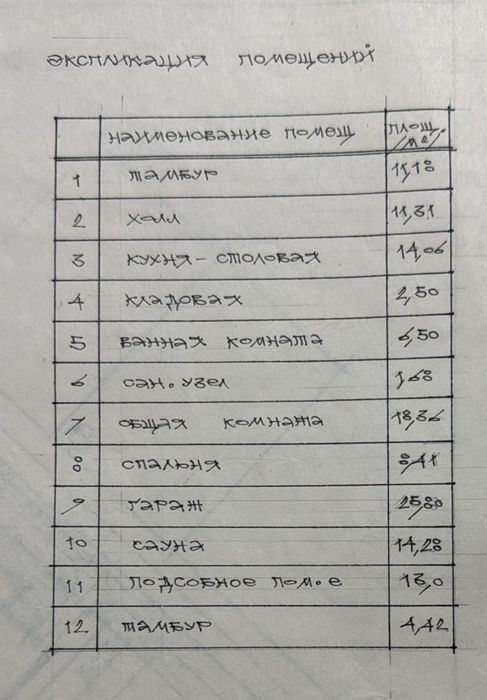 экспликация помещений
наименование помещ площ. /м2/
1 тамбур 11,18
2 холл 11,31
3 кухня - столовая 14,06
4 кладовая 2,50
5 ванная комната 6,50
6 сан. узел 1,68
7 общая комната 18,36
8 спальня 8,41
9 гараж 25,80
10 сауна 14,28
11 подсобное пом.е 13,0
12 тамбур 4,42